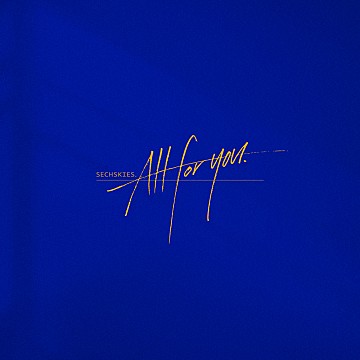 SECHSKIES.
All for you.